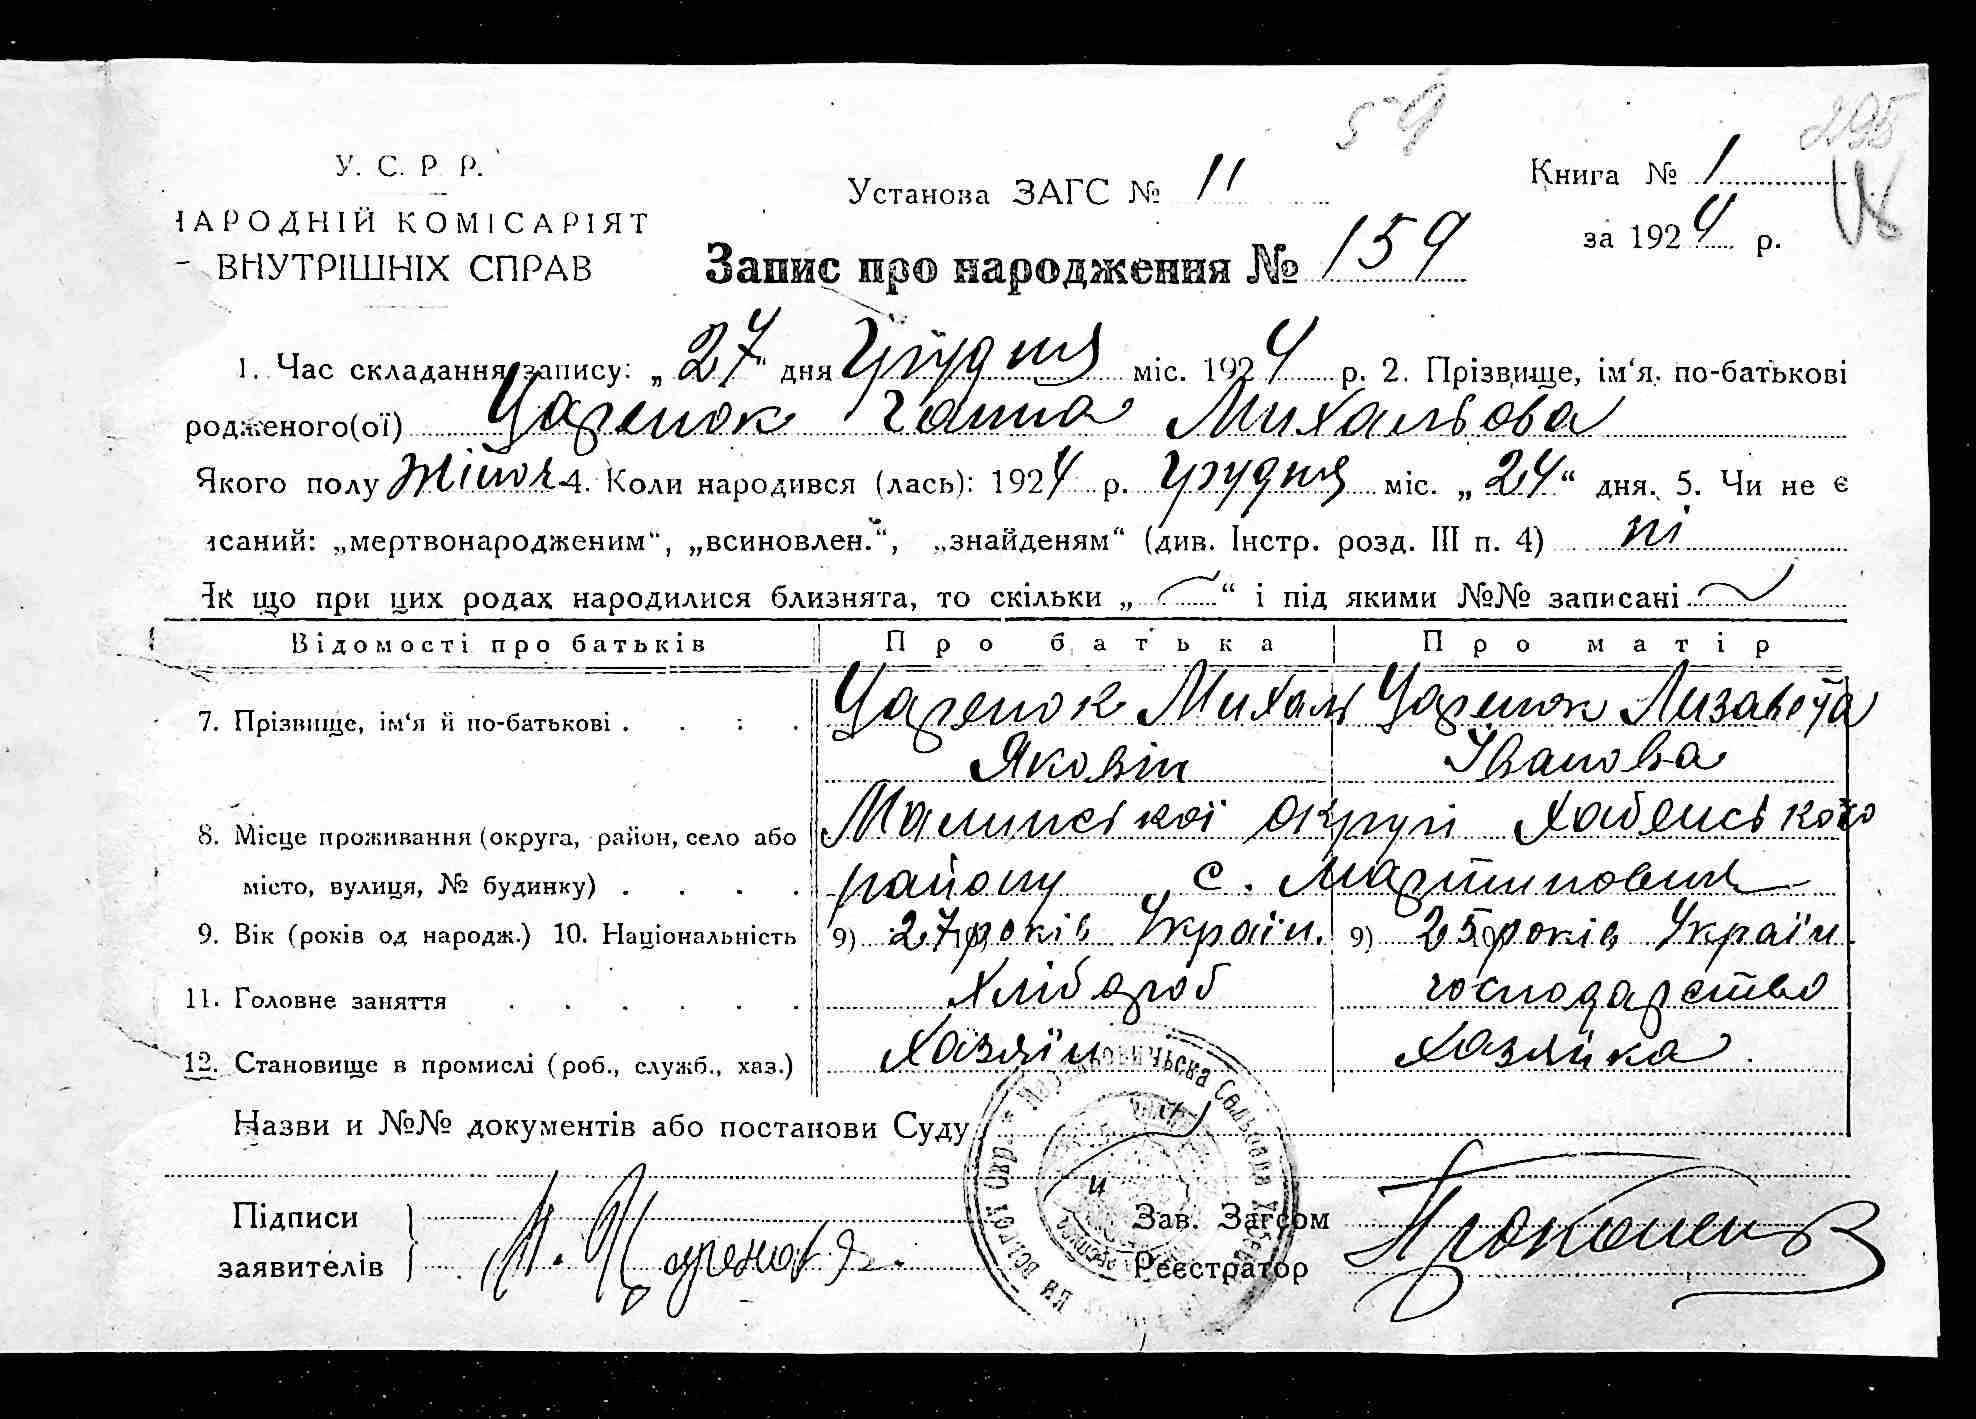 59
295
У. С. Р. Р.
НАРОДНІЙ КОМІСАРІЯТ
ВНУТРІШНІХ СПРАВ
Установа ЗАГС № 11
Книга № 1
за 1924 р.
Запис про народження № 159
1. Час складання запису: „27“ дня Грудня міс. 1924 р. 2. Прізвище, ім‘я, по-батькові
родженого(ої) Царенок Ганна Михальова
Якого полу жіноч. 4. Коли народився (лась): 1924 р. Грудня міс. „24“ дня. 5. Чи не є
исаний: „мертвонародженим“, „всиновлен.“, „знайденям“ (див. Інстр. розд. III п. 4) ні
Як що при цих родах народилися близнята, то скільки „—“ і під якими №№ записані —
Відомості про батьків Про батька Про матір
7. Прізвище, ім‘я й по-батькові . . . . Царенок Михаль Царенок Лизавета
Яковін Іванова
8. Місце проживання (округа, район, село або Малинської округи Хабенського
місто, вулиця, № будинку) . . . . району с. Мартиновичі
9. Вік (років од народж.) 10. Національність 9) 27 років Україн. 9) 25 років Україн.
11. Головне заняття . . . . . . Хлібороб господарство
12. Становище в промислі (роб., служб., хаз.) Хазяїн Хазяйка
Назви и №№ документів або постанови Суду
Підписи
заявителів
М. Царенок
Зав. Загсом
Реєстратор